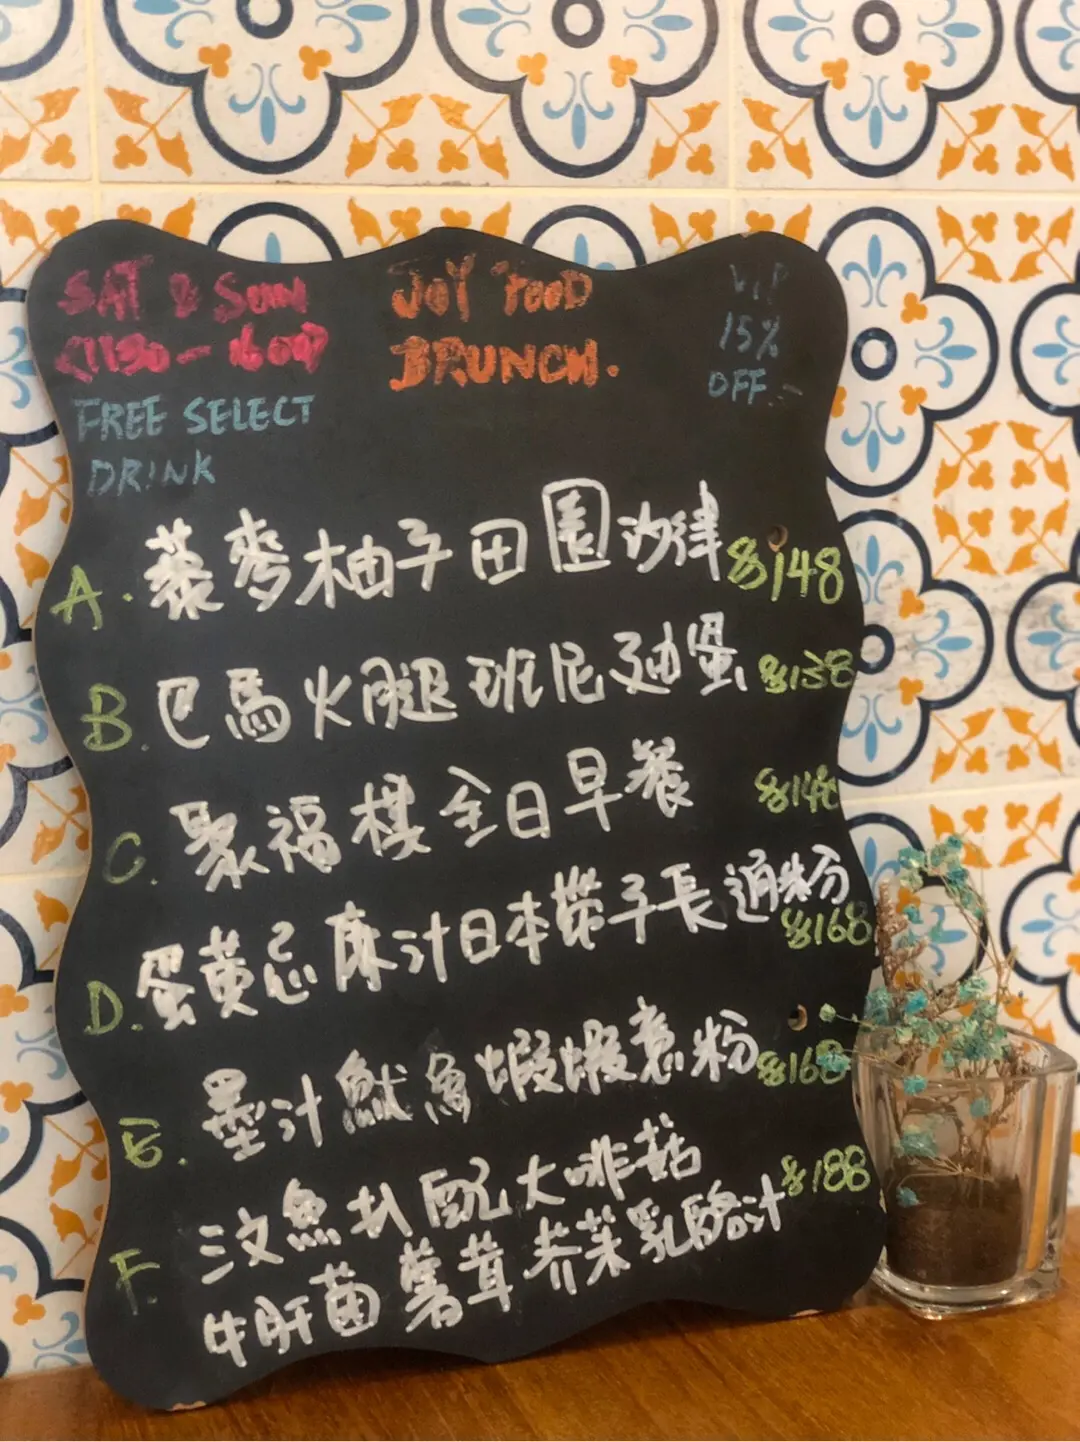 SAT & SUN
(1130 - 1600)
JOY FOOD
BRUNCH.
VIP
15%
OFF
FREE SELECT
DRINK
A. 藜麥柚子田園沙律 $148
B. 巴馬火腿班尼廸蛋 $138
C. 聚福棋全日早餐
D. 蛋黃忌廉汁日本帶子長通粉 $168
E. 墨汁魷魚蝦蝦意粉 $168
F. 魚扒配大啡菇 $188
牛肝菌薯茸芥茉乳酪汁